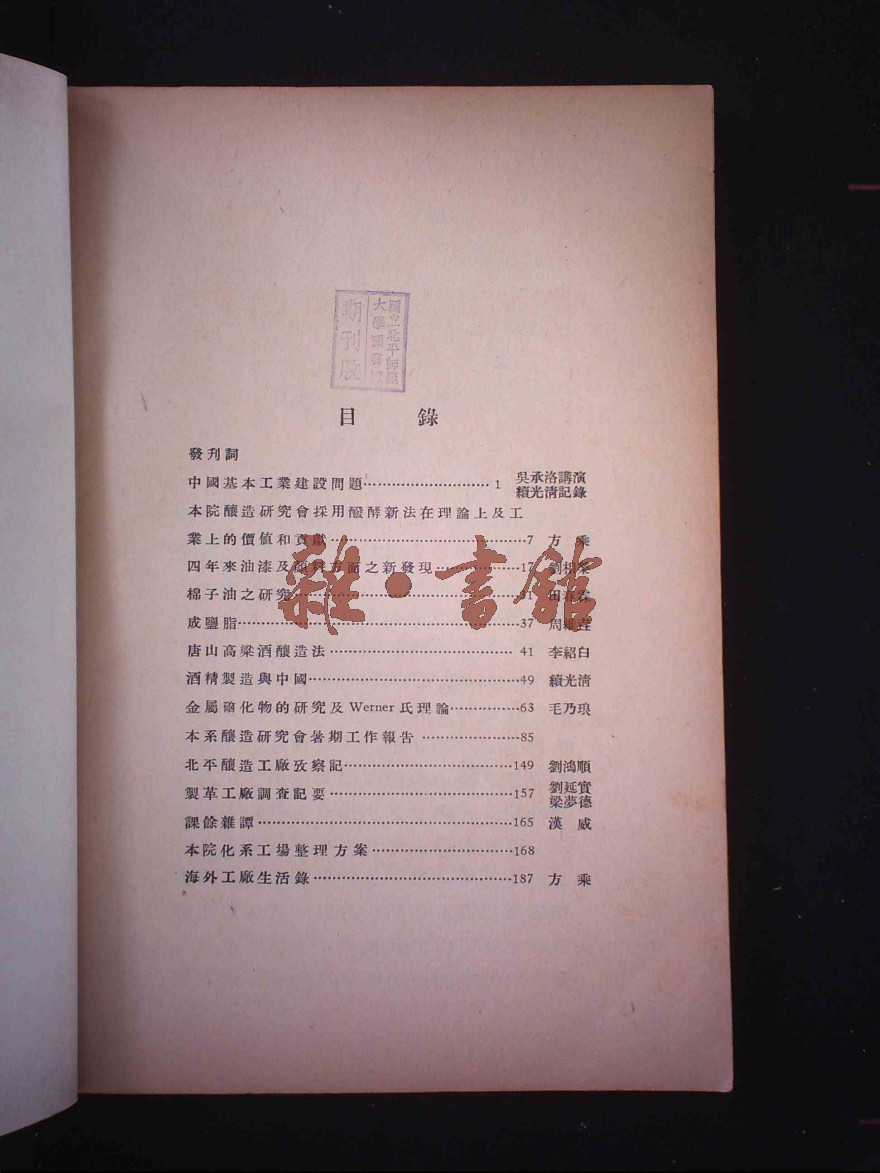 國立北平師範
大學圖書館
期刊股
目錄
發刊詞
中國基本工業建設問題……………………1 吳承洛講演
續光清記錄
本院釀造研究會採用醱酵新法在理論上及工
業上的價值和貢獻……………………7 方乘
四年來油漆及顏料方面之新發現……………17
棉子油之研究……………………31 田春霖
成鹽脂……………………37 周維
唐山高粱酒釀造法……………………41 李紹白
酒精製造與中國……………………49 續光清
金屬礆化物的研究及Werner氏理論……………63 毛乃琅
本系釀造研究會暑期工作報告……………85
北平釀造工廠攷察記……………………149 劉鴻順
製革工廠調查記要……………………157 劉延實
梁夢德
課餘雜譚……………………165 漢威
本院化系工場整理方案……………168
海外工廠生活錄……………………187 方乘
雜·書館